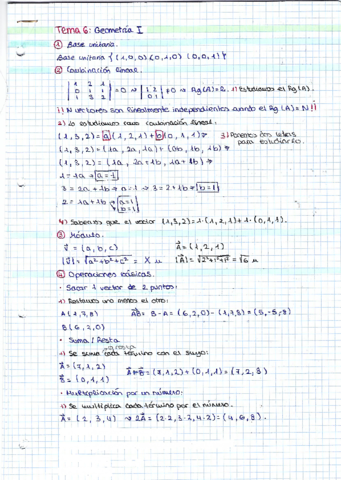 Tema 6: Geometría I
① Base unitaria.
Base unitaria { (1,0,0) (0,1,0) (0,0,1) }
② Combinación lineal.
| 1 2 1 |
| 0 1 1 | = 0 → | 1 2 | ≠ 0 → Rg (A) = 2. 1) Estudiamos el Rg (A).
| 1 3 2 | | 0 1 |
¡¡ N vectores son linealmente independientes cuando el Rg (A) = N !!
2) Lo estudiamos como combinación lineal.
(1,3,2) = a (1,2,1) + b (0,1,1) 3) Ponemos dos letras para estudiarlo.
(1,3,2) = (1a, 2a, 1a) + (0b, 1b, 1b)
(1,3,2) = (1a, 2a + 1b, 1a + 1b)
1 = 1a → a = 1
3 = 2a + 1b → a = 1 → 3 = 2 + 1b → b = 1
2 = 1a + 1b → a = 1 b = 1
4) Sabemos que el vector (1,3,2) = 1·(1,2,1) + 1·(0,1,1).
③ Módulo.
V = (a, b, c) A = (1,2,1)
|V| = √a²+b²+c² = X u |A| = √1²+2²+1² = √6 u
④ Operaciones básicas.
· Sacar 1 vector de 2 puntos:
1) Restamos uno menos el otro:
A (1,7,8) AB = B - A = (6,2,0) - (1,7,8) = (5,-5,-8)
B (6,2,0)
· Suma / Resta
1) Se suma cada término con el suyo:
A = (7,1,2) A+B = (7,1,2) + (0,1,1) = (7,2,3)
B = (0,1,1)
· Multiplicación por un número:
1) Se multiplica cada término por el número.
A = (2,3,4) → 2A = (2·2, 3·2, 4·2) = (4,6,8).